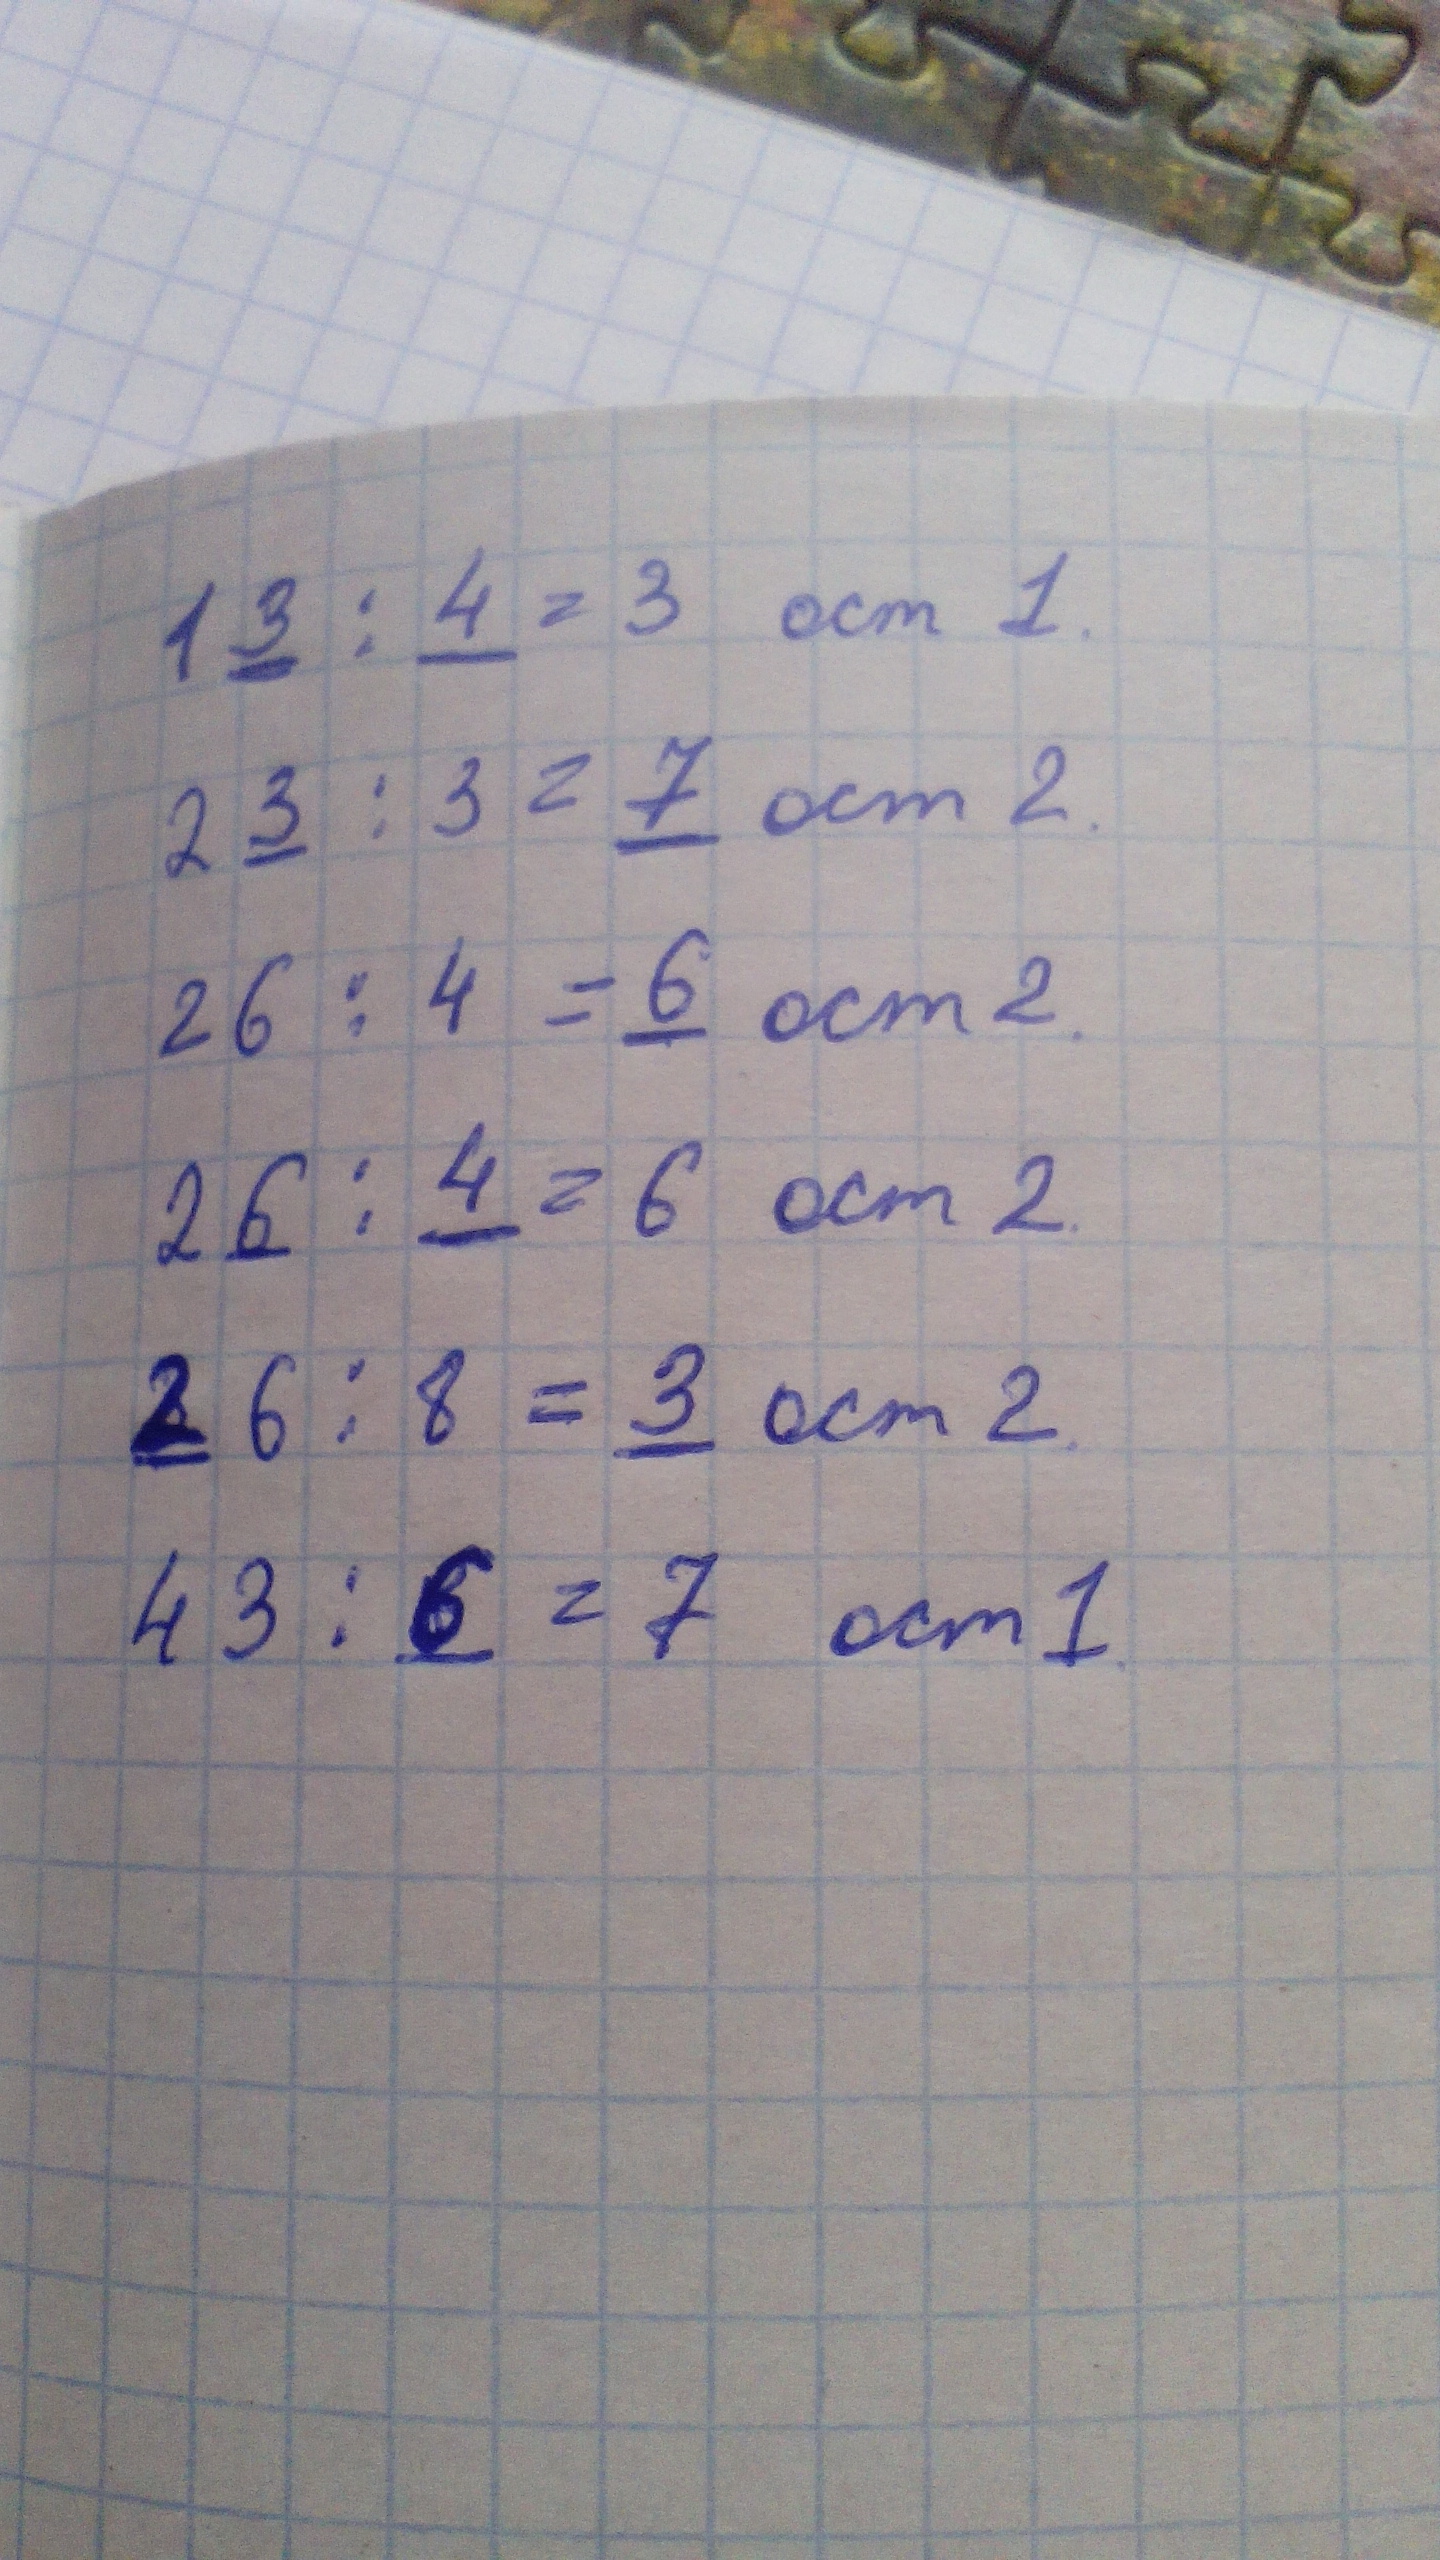 13 : 4 = 3 ост 1.
23 : 3 = 7 ост 2.
26 : 4 = 6 ост 2.
26 : 4 = 6 ост 2.
26 : 8 = 3 ост 2.
43 : 6 = 7 ост 1.